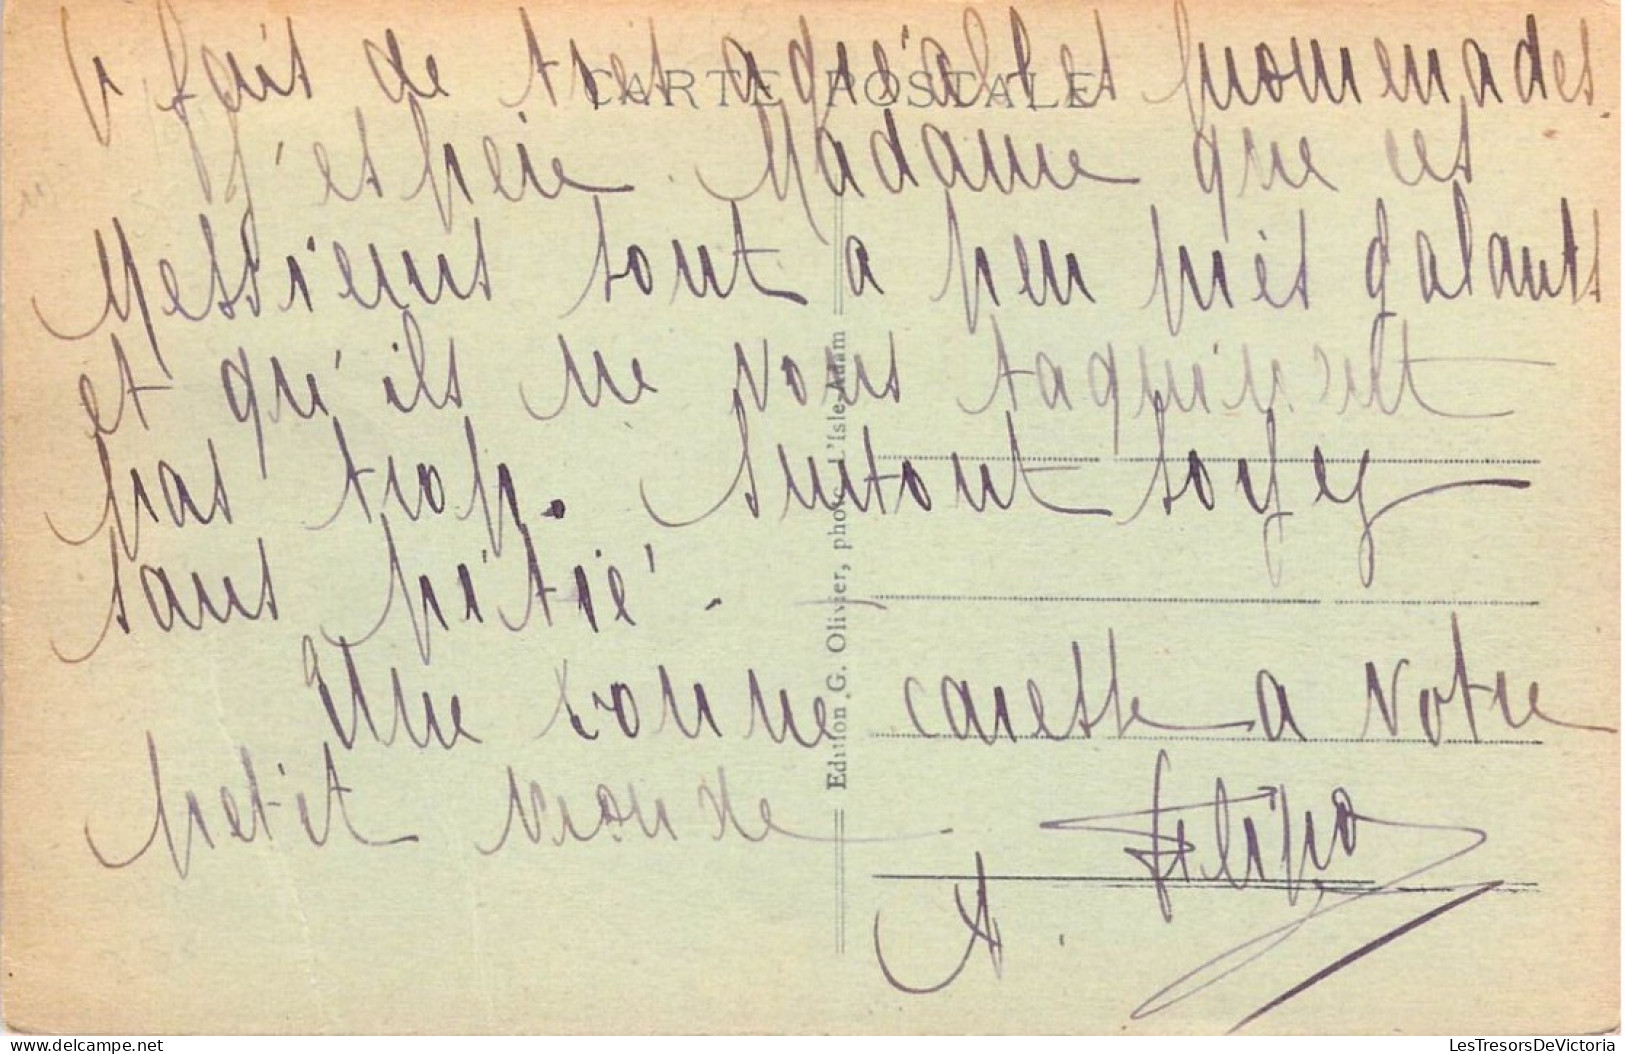 fait de tres agréables promenades.
CARTE POSTALE
J'espère Madame que ces
Messieurs sont a peu près galants
et qu'ils ne vous taquinent
pas trop. Surtout soyez
sans pitié. -
Une bonne caresse a votre
petit monde.
A. Filipo
Edition G. Olivier, photo. L'Isle-Adam
LesTresorsDeVictoria
https://www.delcampe.net